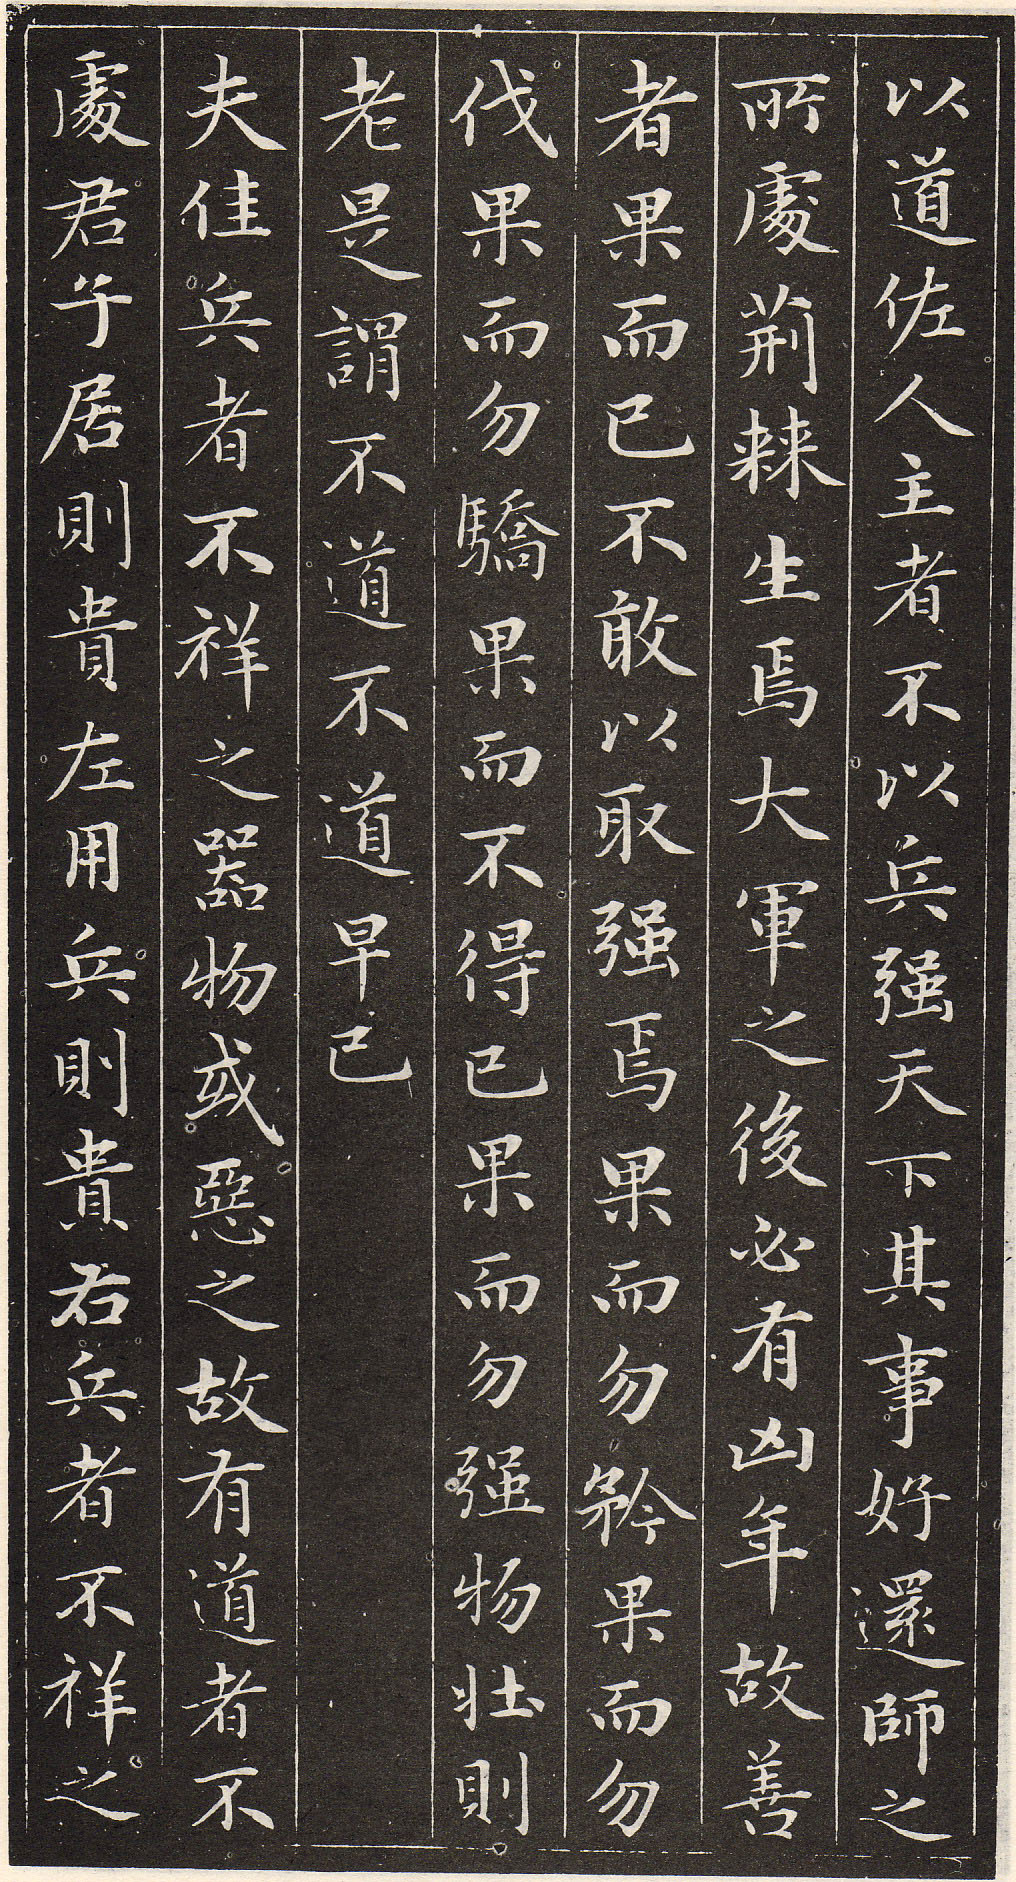 以道佐人主者不以兵强天下其事好還師之
所處荆棘生焉大軍之後必有凶年故善
者果而已不敢以取强焉果而勿矜果而勿
伐果而勿驕果而不得已果而勿强物壯則
老是謂不道不道早已
夫佳兵者不祥之器物或惡之故有道者不
處君子居則貴左用兵則貴右兵者不祥之